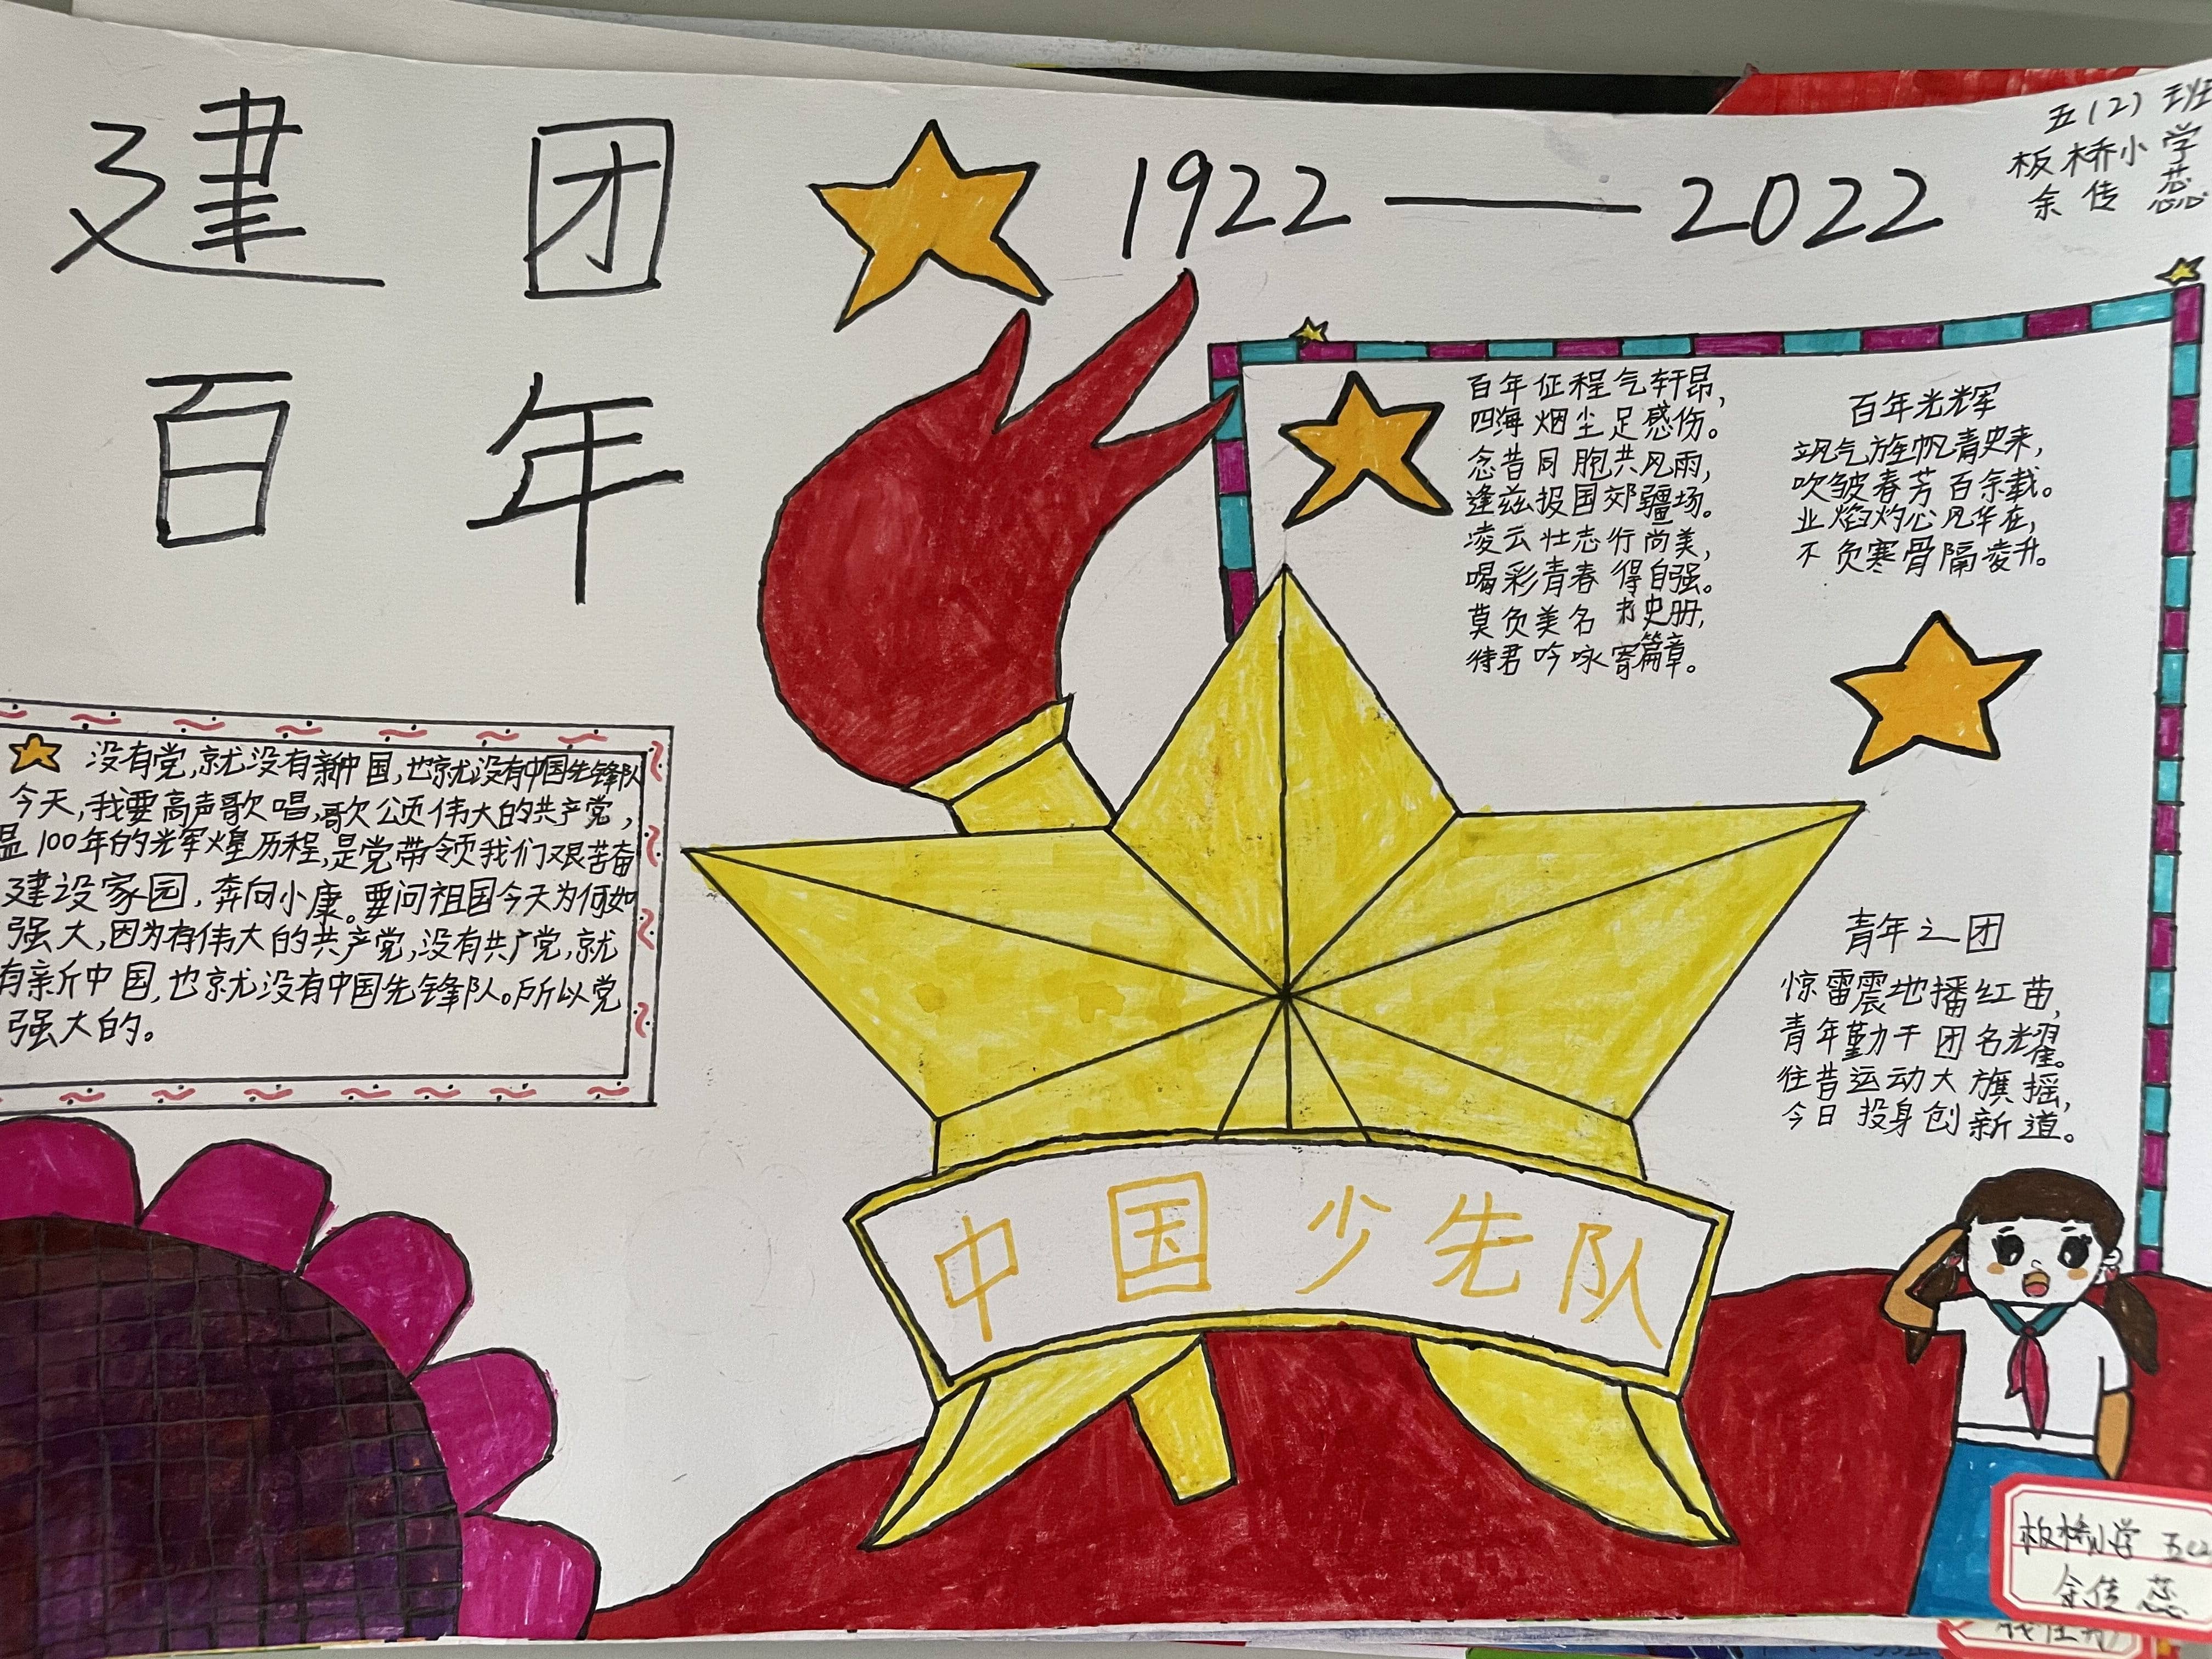 建团
百年
1922——2022
五(2)班
板桥小学
余传蕊
百年征程气轩昂,
四海烟尘足感伤。
念昔同胞共风雨,
逢兹报国郊疆场。
凌云壮志行尚美,
喝彩青春得自强。
莫负美名书史册,
待君吟咏寄篇章。
百年光辉
飒气旌帆青史来,
吹皱春芳百余载。
业焰灼心风华在,
不负寒骨隔凌升。
没有党,就没有新中国,也就没有中国先锋队
今天,我要高声歌唱,歌颂伟大的共产党,
温100年的光辉煌历程,是党带领我们艰苦奋
建设家园,奔向小康。要问祖国今天为何如
强大,因为有伟大的共产党,没有共产党,就
有新中国,也就没有中国先锋队。所以党
强大的。
青年之团
惊雷震地播红苗,
青年勤干团名耀。
往昔运动大旗摇,
今日投身创新道。
中国少先队
板桥小学 五(2
余传蕊